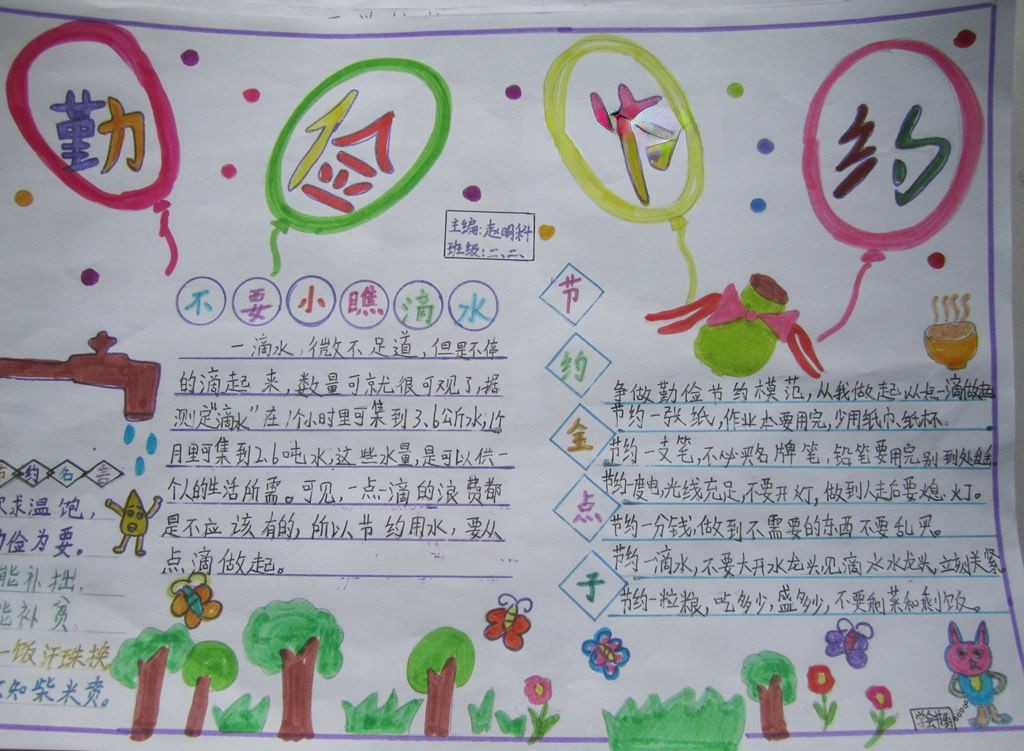 勤俭节约
主编:赵明科
班级:二、二、
不要小瞧滴水
一滴水,微不足道,但是不停
的滴起来,数量可就很可观了,据
测定“滴水”在1个小时里可集到3.6公斤水,1个
月里可集到2.6吨水,这些水量,是可以供一
个人的生活所需。可见,一点一滴的浪费都
是不应该有的,所以节约用水,要从
点滴做起。
节约名言
求温饱,
俭为要。
能补拙,
能补贫。
一饭汗珠换,
知柴米贵。
节约金点子
争做勤俭节约模范,从我做起,从一点一滴做起
节约一张纸,作业本要用完,少用纸巾、纸杯。
节约一支笔,不必买名牌笔,铅笔要用完别到处丢
节约一度电,光线充足,不要开灯,做到人走后要熄灯。
节约一分钱,做到不需要的东西不要乱买。
节约一滴水,不要大开水龙头,见滴水水龙头,立刻关紧
节约一粒粮,吃多少,盛多少,不要剩菜和剩饭。
学会节约